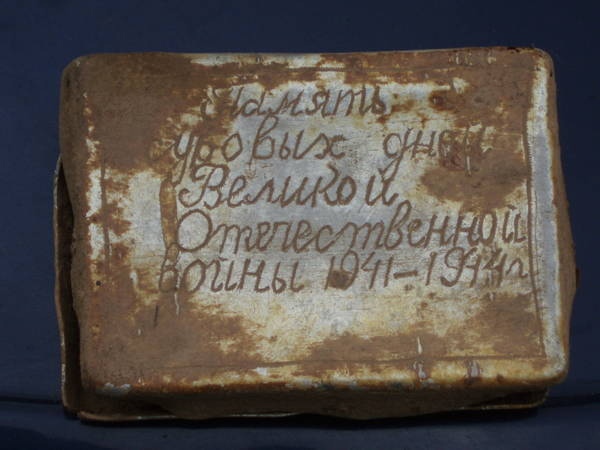 Память
суровых дней
Великой
Отечественной
войны 1941-1944г